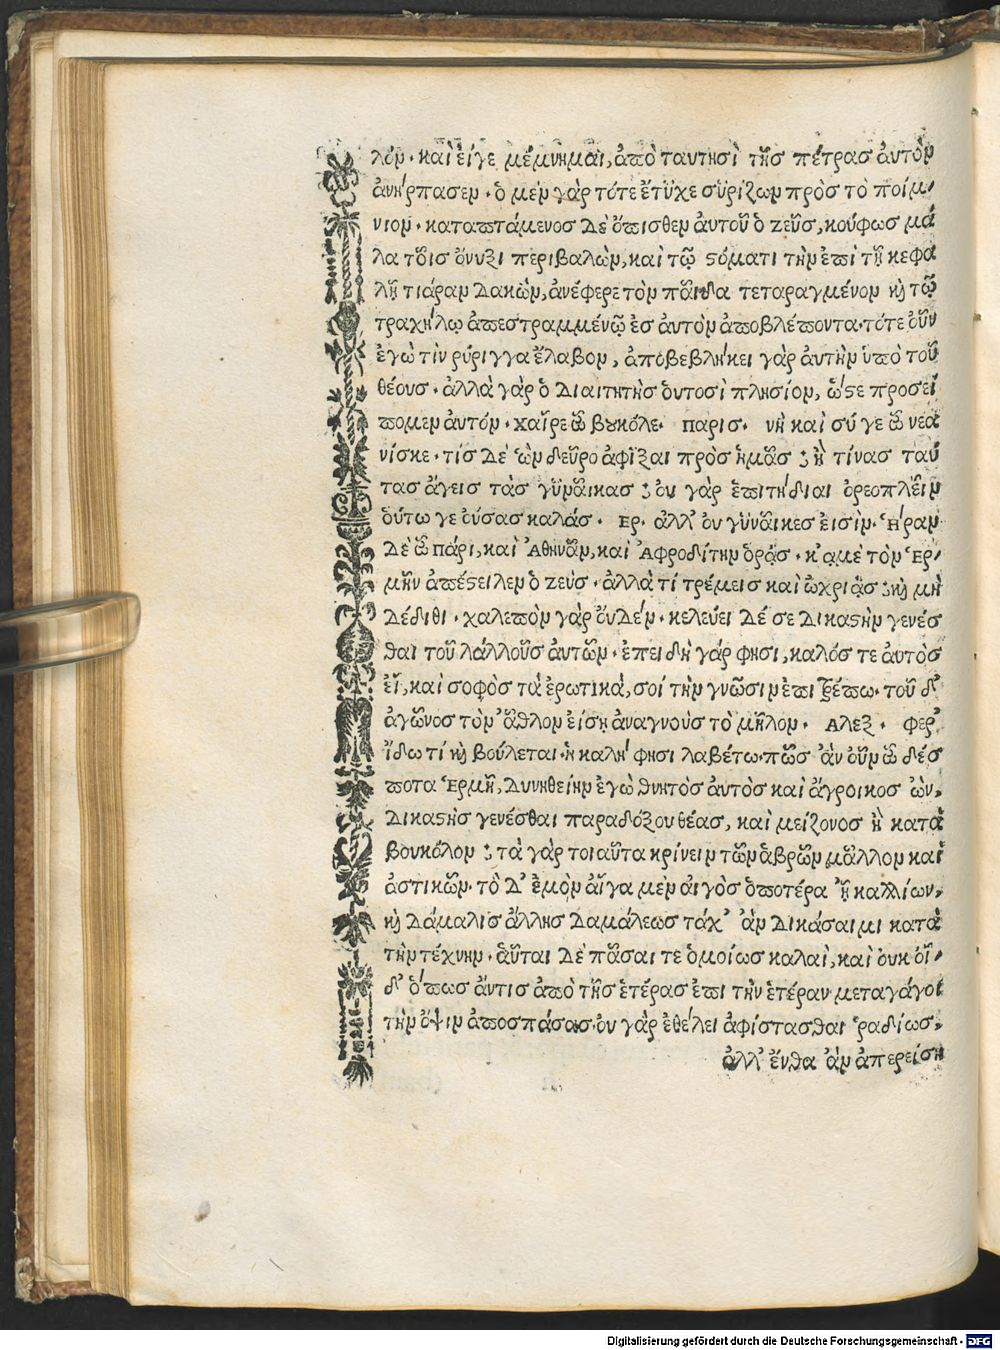 λόν· καὶ εἴγε μέμνημαι, ἀπὸ ταυτησὶ τῆς πέτρας ἀυτὸν
ἀνήρπασεν· ὁ μὲν γὰρ τότε ἔτυχε συρίζων πρὸς τὸ ποίμ,
νιον· καταπτάμενος δὲ ὄπισθεν ἀυτοῦ ὁ ζεῦς, κούφως μά
λα τοῖς ὄνυξι περιβαλὼν, καὶ τῷ ϛόματι τὴν ἐπὶ τῇ κεφα
λῇ τιάραν δακὼν, ἀνέφερε τὸν παῖδα τεταραγμένον κỳ τῷ
τραχήλῳ ἀπεστραμμένῳ ἐς ἀυτὸν ἀποβλέποντα· τότε οὖν
ἐγὼ τὶν ρύριγγα ἔλαβον, ἀποβεβλήκει γὰρ ἀυτὴν ὑπὸ τοῦ
θέους· ἀλλὰ γὰρ ὁ διαιτητὴς ὁυτοσὶ πλησίον, ὥϛε προσεί
πομεν ἀυτόν· χαῖρε ὦ βȣκόλε· παρισ· νὴ καὶ σύ γε ὦ νεα
νίσκε· τίς δὲ ὢν δεῦρο ἀφῖξαι πρὸς ἡμᾶς ; ἢ τίνας ταύ
τας ἄγεις τὰς γυναῖκας ; ὀυ γὰρ ἐπιτήδιαι ὀρεοπλεῖν
ὁύτω γε ὀύσας καλάς· ερ· ἀλλ’ ὀυ γυναῖκες εἰσὶν· Ἥραν
δὲ ὦ πάρι, καὶ Ἀθηνᾶν, καὶ Ἀφροδίτην ὁρᾷς· κἀμὲ τὸν Ἑρ,
μῆν ἀπέϛειλεν ὁ ζεὺς· ἀλλὰ τί τρέμεις καὶ ὠχριᾷς ; κỳ μὴ
δέδιθι· χαλεπὸν γὰρ ὀυδέν· κελεύει δέ σε δικαϛὴν γενέσ
θαι τοῦ λάλλοῦς ἀυτῶν· ἐπειδὴ γάρ φησι, καλός τε ἀυτὸς
εἶ, καὶ σοφὸς τὰ ἐρωτικὰ, σοὶ τὴν γνῶσιν ἐπιτρέπω· τοῦ δ’
ἀγῶνος τὸν ἆθλον εἴσῃ ἀναγνοὺς τὸ μῆλον· αλεξ· φερ’
ἴδω τί κỳ βούλεται· ἡ καλή φησι λαβέτω· πῶς ἂν οὖν ὦ δέσ
ποτα Ἑρμῆ, δυνηθείην ἐγὼ θνητὸς ἀυτὸς καὶ ἄγροικος ὢν,
δικαϛὴς γενέσθαι παραδόξου θέας, καὶ μείζονος ἢ κατὰ
βουκόλον ; τὰ γὰρ τοιαῦτα κρίνειν τῶν ἁβρῶν μᾶλλον καὶ
ἀστικῶν· τὸ δ’ ἐμὸν αἶγα μὲν αἰγὸς ὁποτέρα ἢ καλλίων,
κỳ δάμαλις ἄλλης δαμάλεως τάχ’ ἂν δικάσαιμι κατὰ
τὴν τέχνην· ἁῦται δὲ πᾶσαι τε ὁμοίως καλαὶ, καὶ ὀυκ οἶ,
δ’ ὅπως ἄντις ἀπὸ τῆς ἑτέρας ἐπι τὴν ἑτέραν μεταγάγοι
τὴν ὄψιν ἀποσπάσας· ὀυ γὰρ ἐθέλει ἀφίστασθαι ῥαδίως,
ἀλλ’ ἔνθα ἂν ἀπερείσῃ
Digitalisierung gefördert durch die Deutsche Forschungsgemeinschaft - DFG